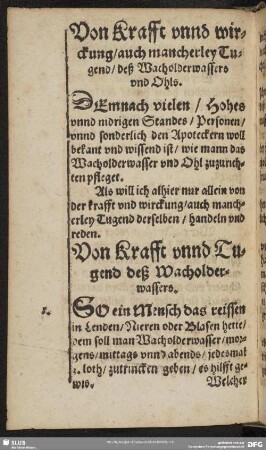 Von Krafft vnnd wir-
ckung/auch mancherley Tu-
gend/deß Wacholderwassers
vnd Ohls.
DEmnach vielen / Hohes
vnnd nidrigen Standes / Personen/
vnnd sonderlich den Apoteckern woll
bekant vnd wissend ist / wie mann das
Wacholderwasser vnd Ohl zuzurich-
ten pfleget.
Als will ich alhier nur allein von
der krafft vnd wirckung/auch manch-
erley Tugend derselben / handeln vnd
reden.
Von Krafft vnnd Tu-
gend deß Wacholder-
wassers.
1. SO ein Mensch das reissen
in Lenden/Nieren oder Blasen hette/
dem soll man Wacholderwasser/mor-
gens/mittags vnnd abends/jedesmal
2. loth/zutrincken geben/es hilfft ge-
wis.
Welcher
SLUB
DFG